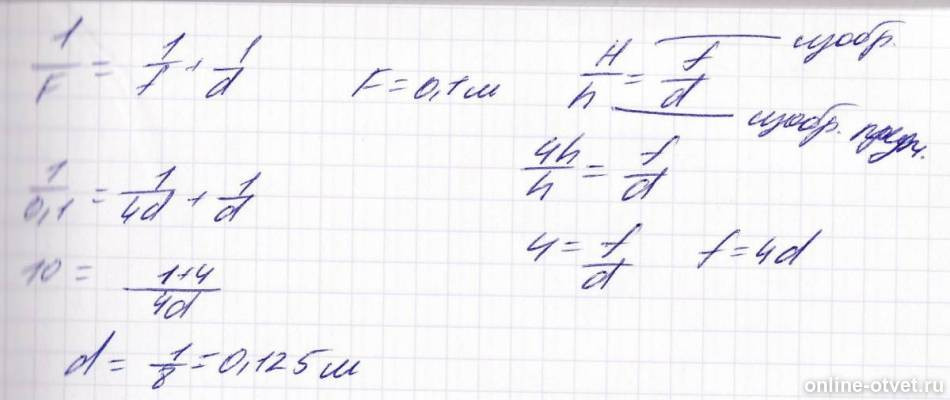 1/F = 1/f + 1/d F = 0,1 м H/h = f/d изобр.
изобр. предм.
1/0,1 = 1/4d + 1/d 4h/h = f/d
10 = 1+4/4d 4 = f/d f = 4d
d = 1/8 = 0,125 м
online-otvet.ru